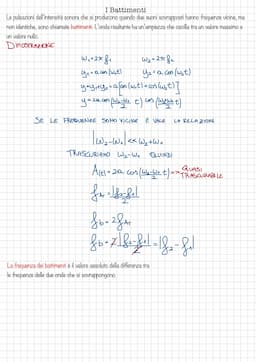 I Battimenti
Le pulsazioni dell'intensità sonora che si producono quando due suoni sovrapposti hanno frequenze vicine, ma
non identiche, sono chiamate battimenti. L'onda risultante ha un'ampiezza che oscilla tra un valore massimo e
un valore nullo.
DIMOSTRAZIONE
ω₁=2π f₁ ω₂=2π f₂
y₁=a cos(ω₁t) y₂=a cos(ω₂t)
y=y₁+y₂=a[cos(ω₁t)+cos(ω₂t)]
y=2a cos(ω₂-ω₁/2 t) cos(ω₂+ω₁/2 t)
SE LE FREQUENZE SONO VICINE E VALE LA RELAZIONE
|ω₂-ω₁| << ω₂+ω₁
TRASCURIAMO ω₂-ω₁ QUINDI
A(t)=2a cos(ω₂-ω₁/2 t) → QUASI
TRASCURABILE
f_A=|f₂-f₁|/2
f_b=2f_A
f_b=2|f₂-f₁|/2=|f₂-f₁|
La frequenza dei battimenti è il valore assoluto della differenza tra
le frequenze delle due onde che si sovrappongono.